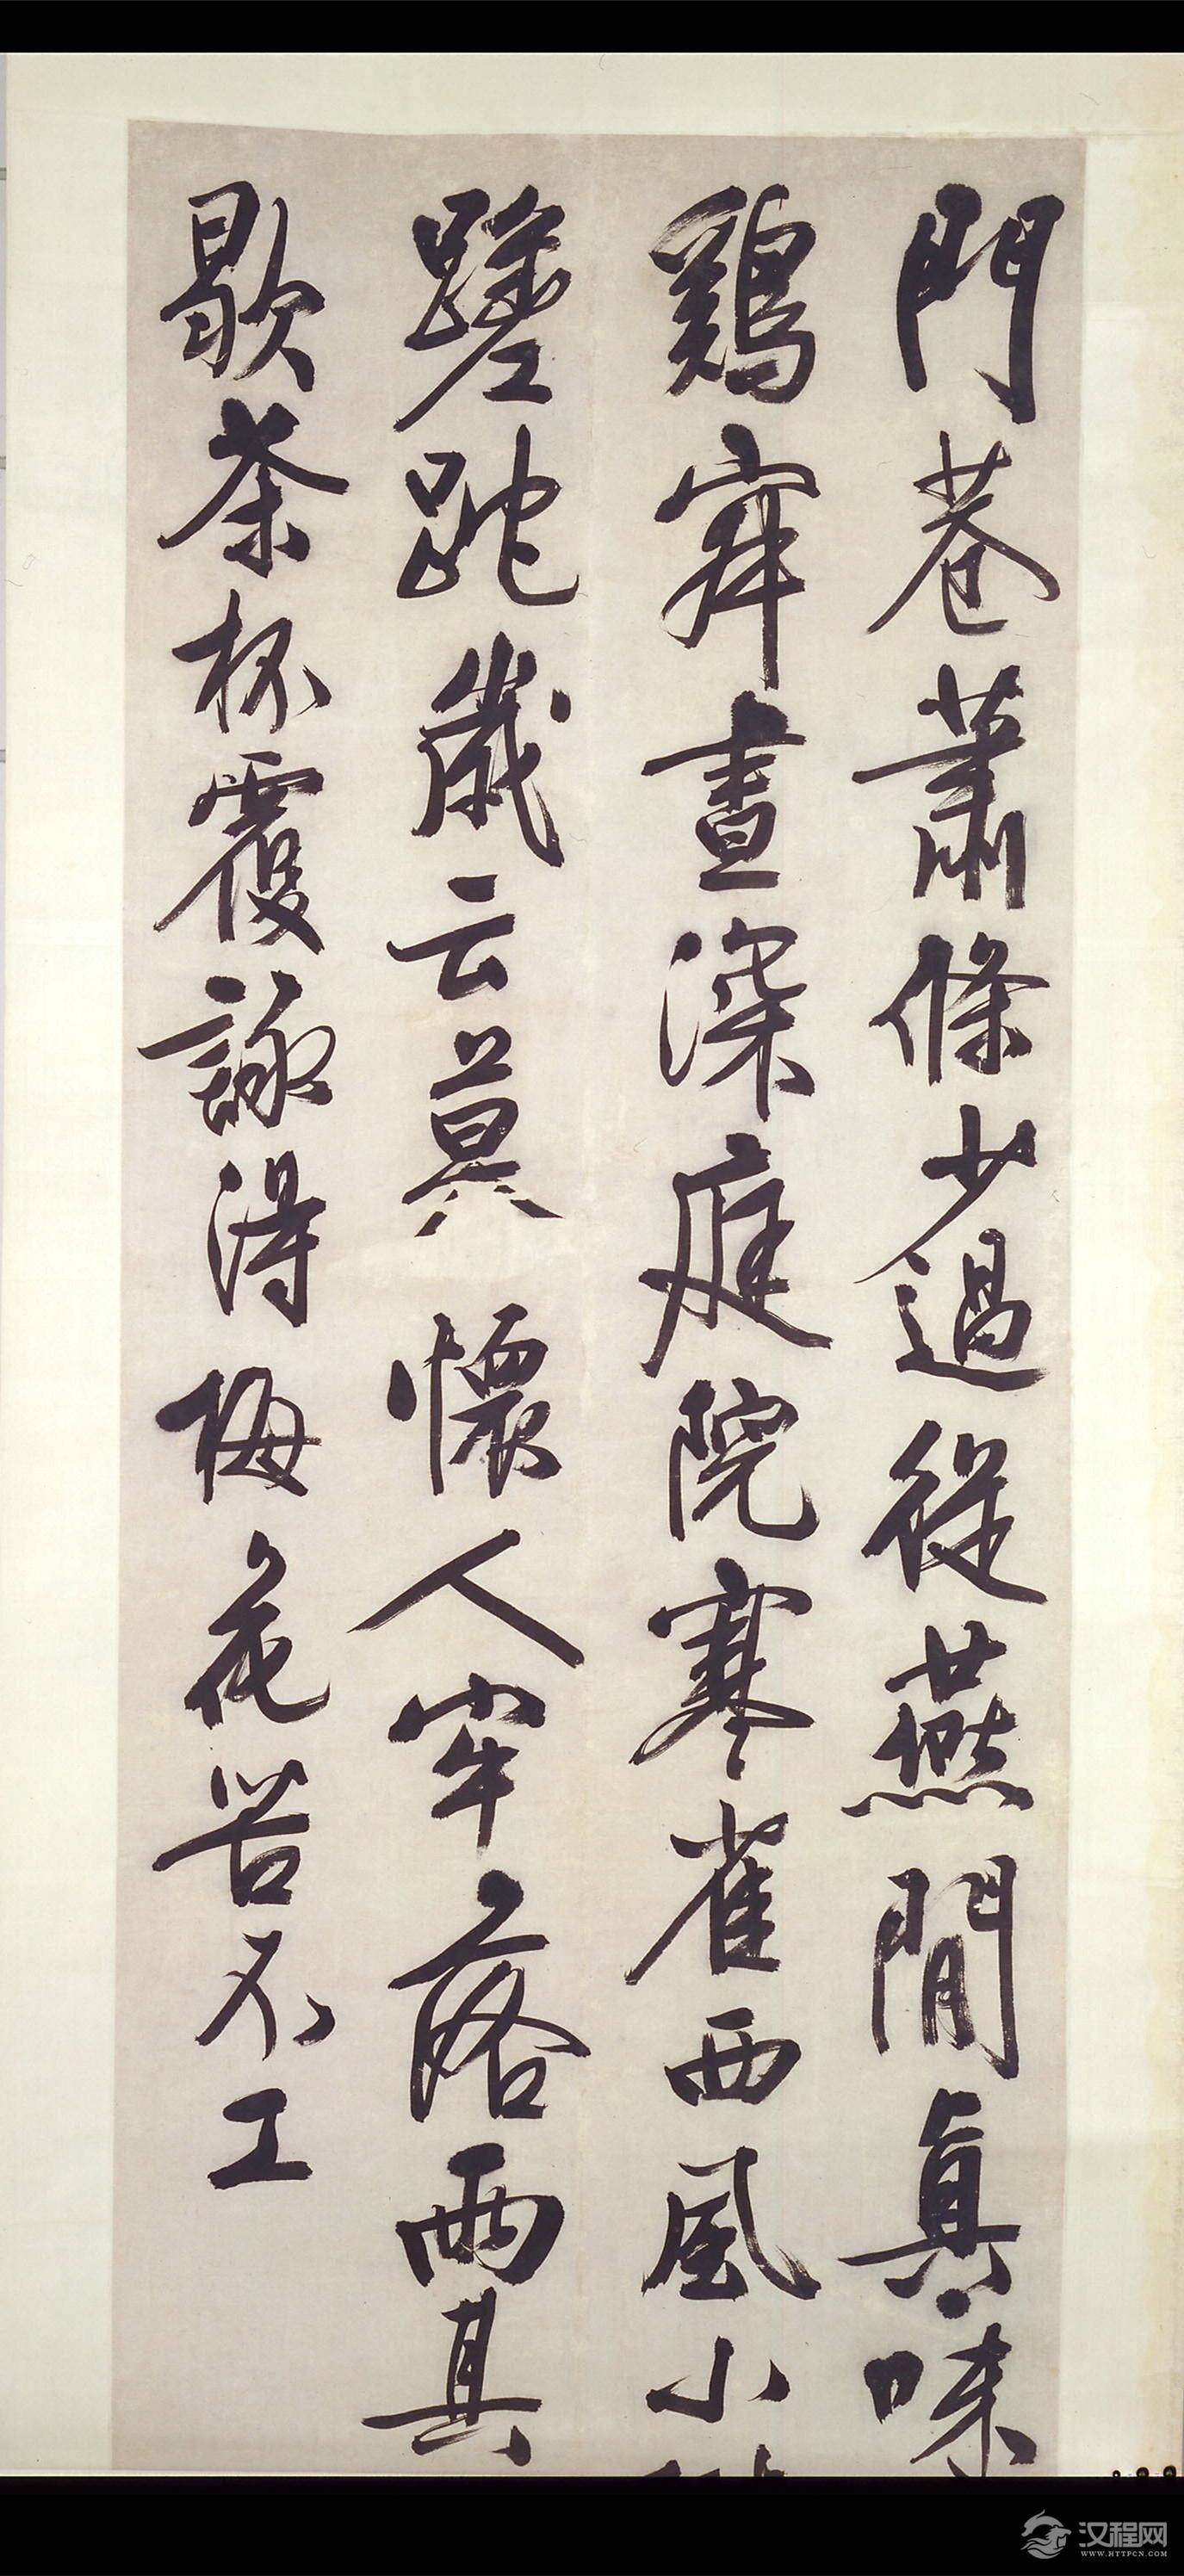 門巷蕭條少過從燕閒真味
鷄犬晝深庭院寒雀西風小
蹉跎歲云莫懷人牢落雨其
歇茶杯覆詠得梅花苦不工
汉程网
WWW.HTTPCN.COM